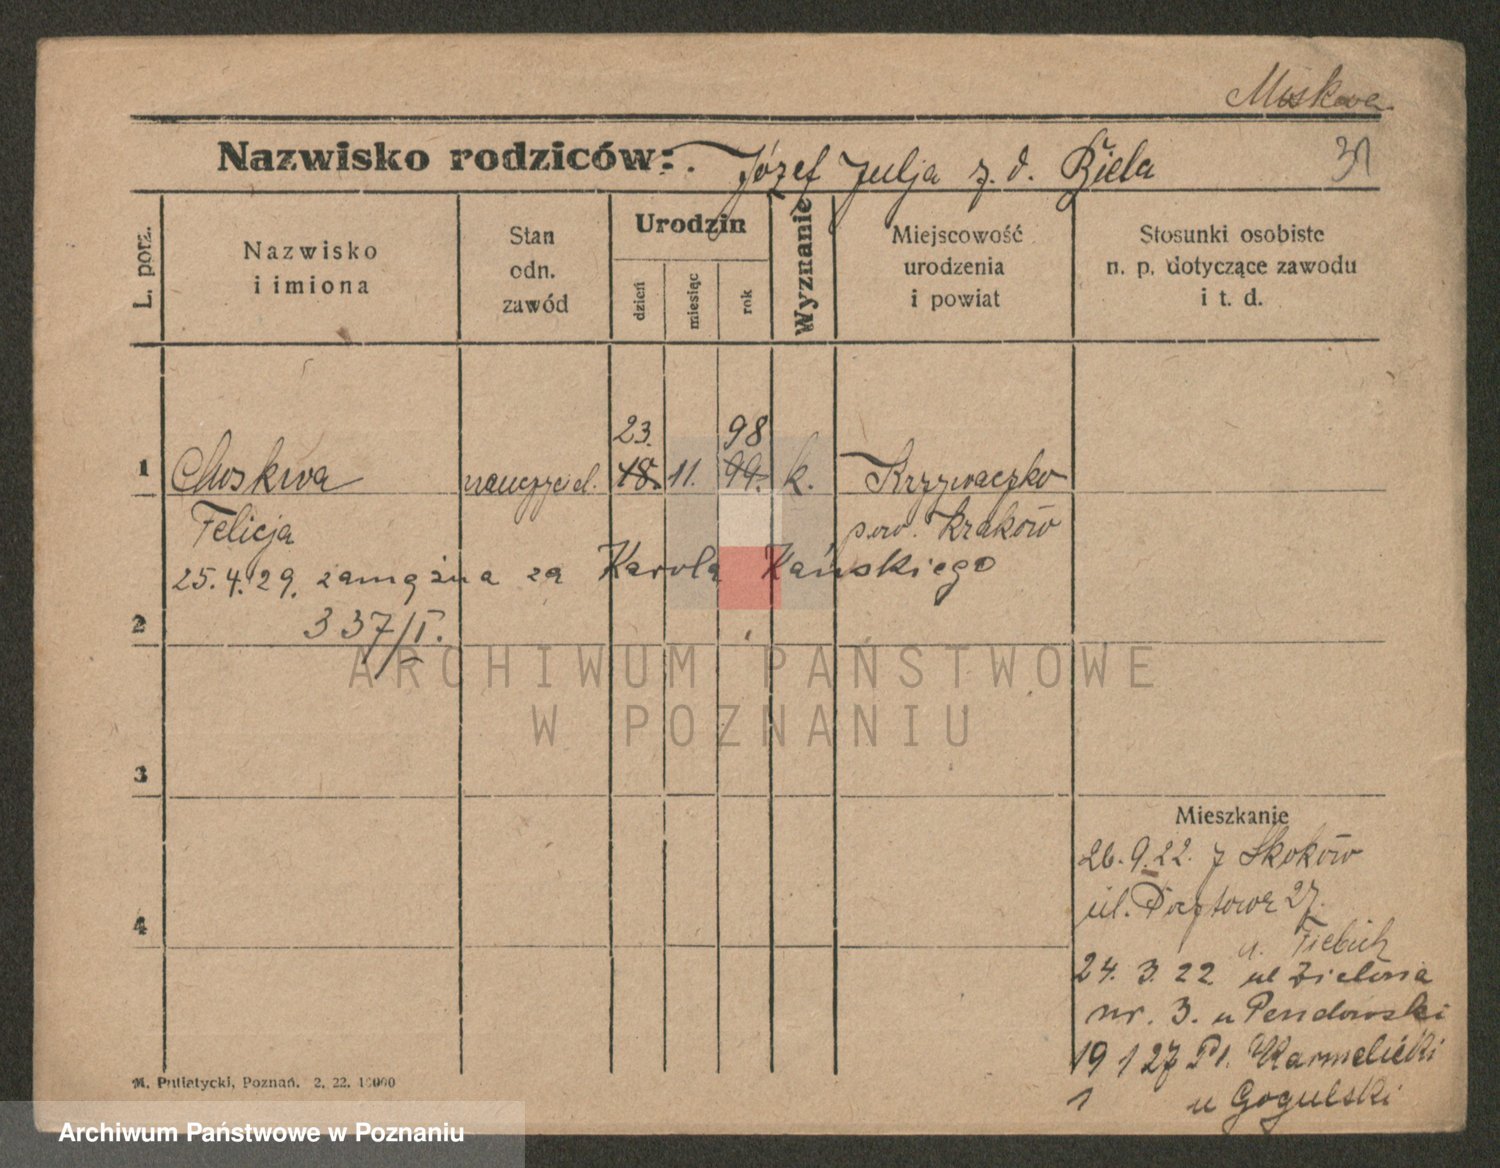 Moskwa
31
Nazwisko rodziców: Józef Julja z. d. Biela
L. porz.
Nazwisko
i imiona
Stan
odn.
zawód
Urodzin
dzień
miesiąc
rok
Wyznanie
Miejscowość
urodzenia
i powiat
Stosunki osobiste
n. p. dotyczące zawodu
i t. d.
23. 98
1 Moskwa nauczyciel. 18. 11. 99. k. Krzywaczka
Felicja pow. Kraków
25.4.29. zamężna za Karola Kańskiego
2 337/I.
3
4
Mieszkanie
26.9.22. z Skoków
ul. Pocztowa 27.
u. Fiebich
24. 3. 22 ul Zielona
nr. 3. u Pendowski
19 1 27 Pl. Karmelicki
1 u Gogulski
M. Putiatycki, Poznań. 2. 22. 10000
ARCHIWUM PAŃSTWOWE
W POZNANIU
Archiwum Państwowe w Poznaniu